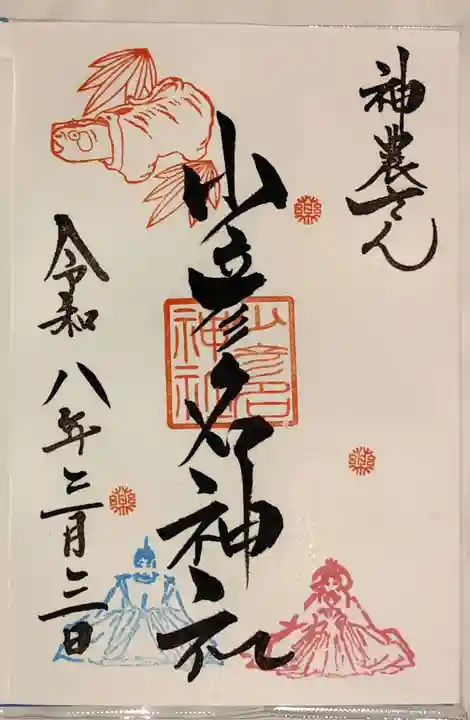 神農さん
少彦名神社
少彦名
神社
令和八年三月三日